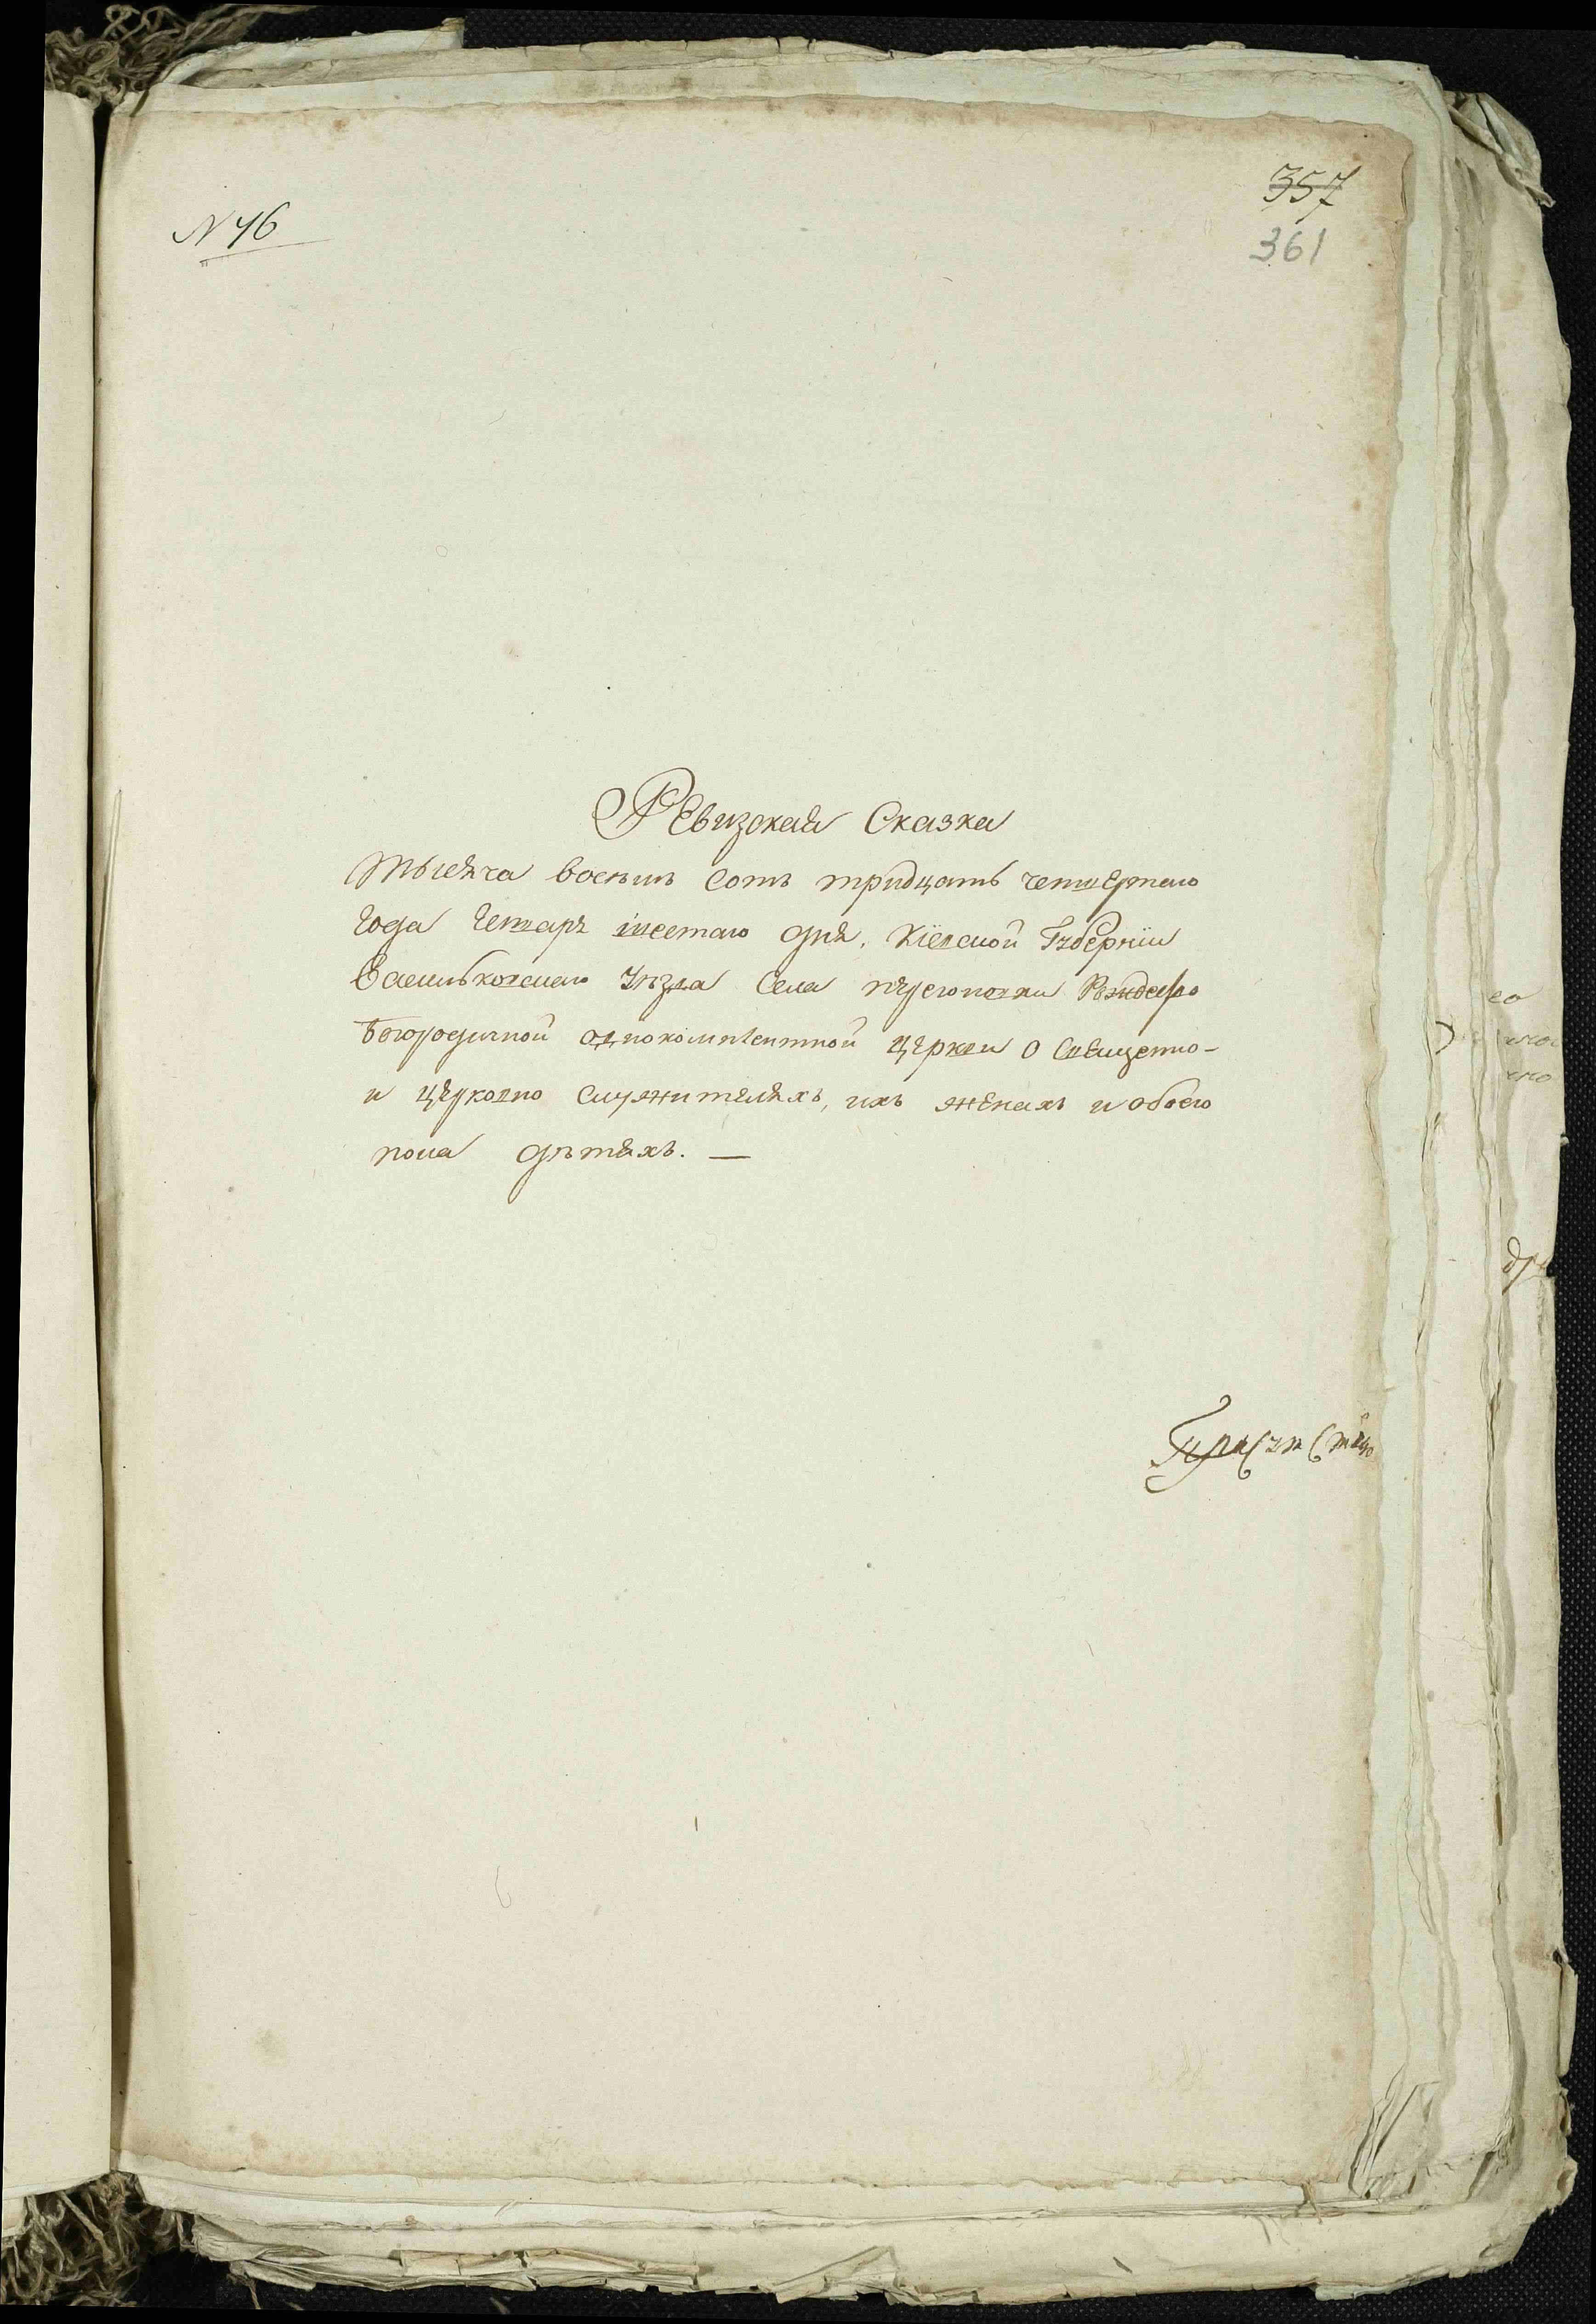 N 46
357
361
Ревизская Сказка
тысяча восемь сотъ тридцать четвертаго
года генваря шестаго дня, Кіевской Губерніи
Васильковскаго уѣзда Села
Богородичной однокомплектной церкви о Священно-
и церковно служителяхъ, ихъ женахъ и обоего
пола дѣтяхъ. —